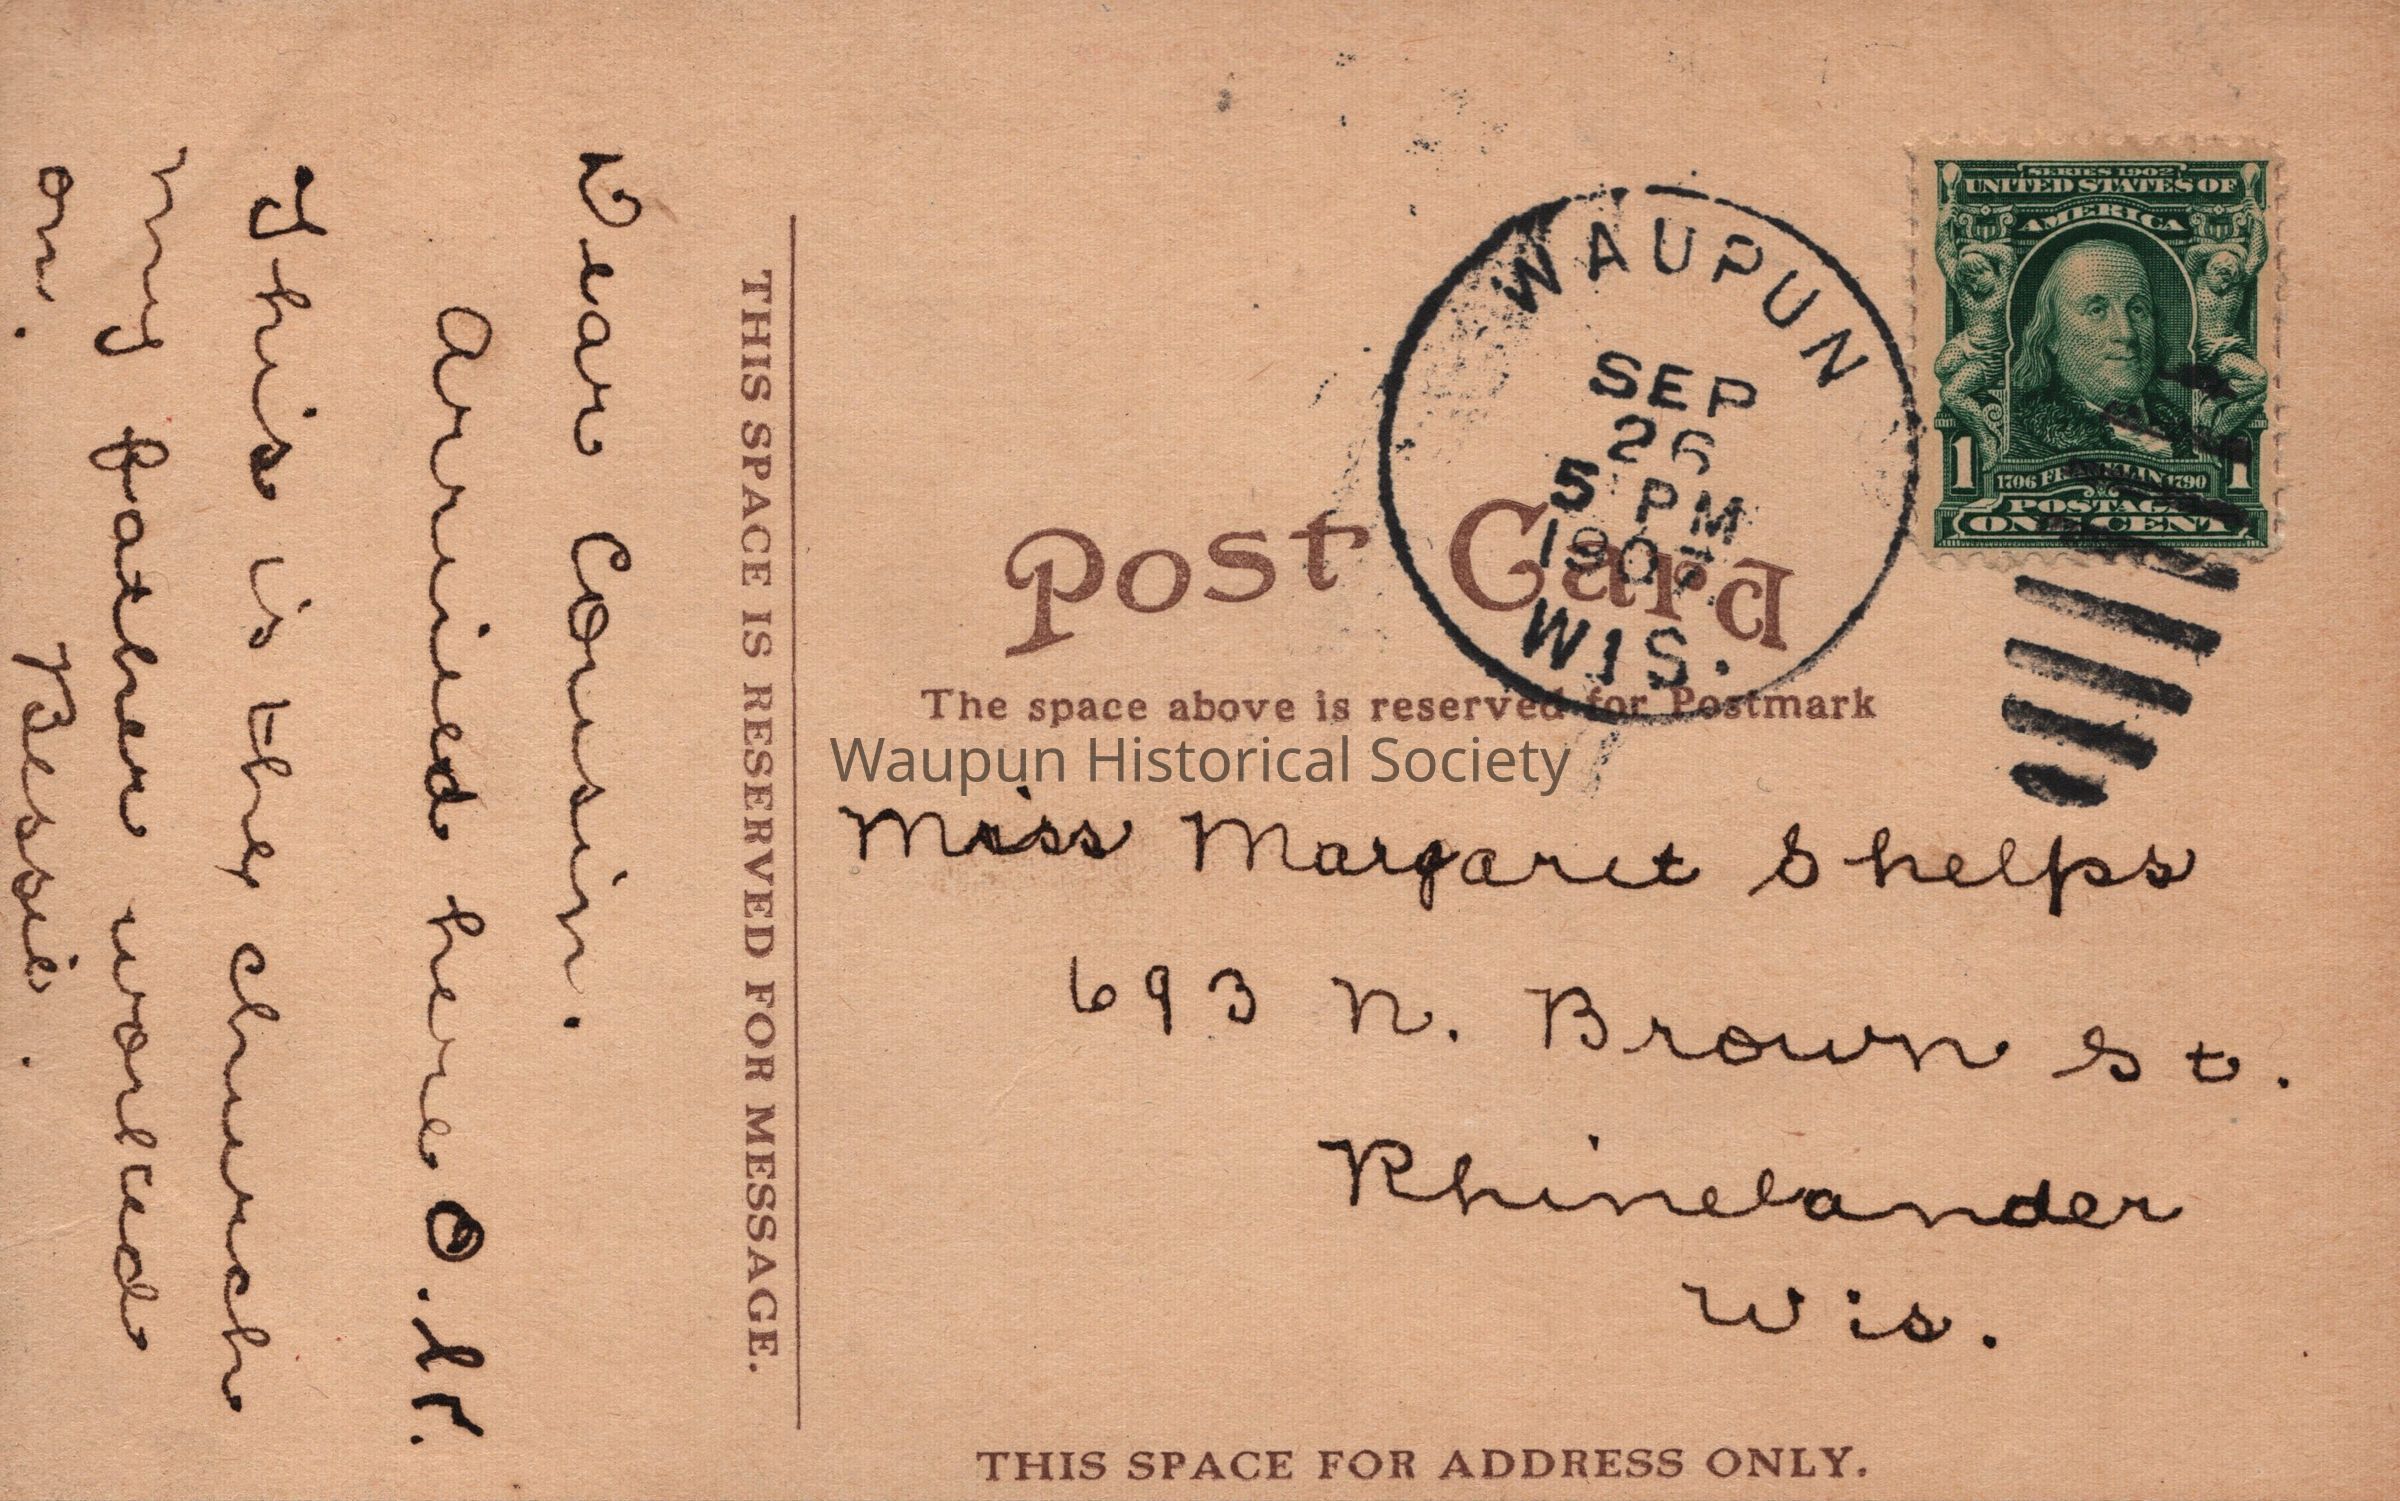 Dear Cousin.
Arrived here O.K.
This is the church
my father worked
on. Bessie.
THIS SPACE IS RESERVED FOR MESSAGE.
SERIES 1902
UNITED STATES OF
AMERICA
1 1
1706 FRANKLIN 1790
POSTAGE
ONE CENT
WAUPUN
SEP
26
5 PM
1907
WIS.
Post Card
The space above is reserved for Postmark
Waupun Historical Society
Miss Margaret Shelps
693 N. Brown St.
Rhinelander
Wis.
THIS SPACE FOR ADDRESS ONLY.